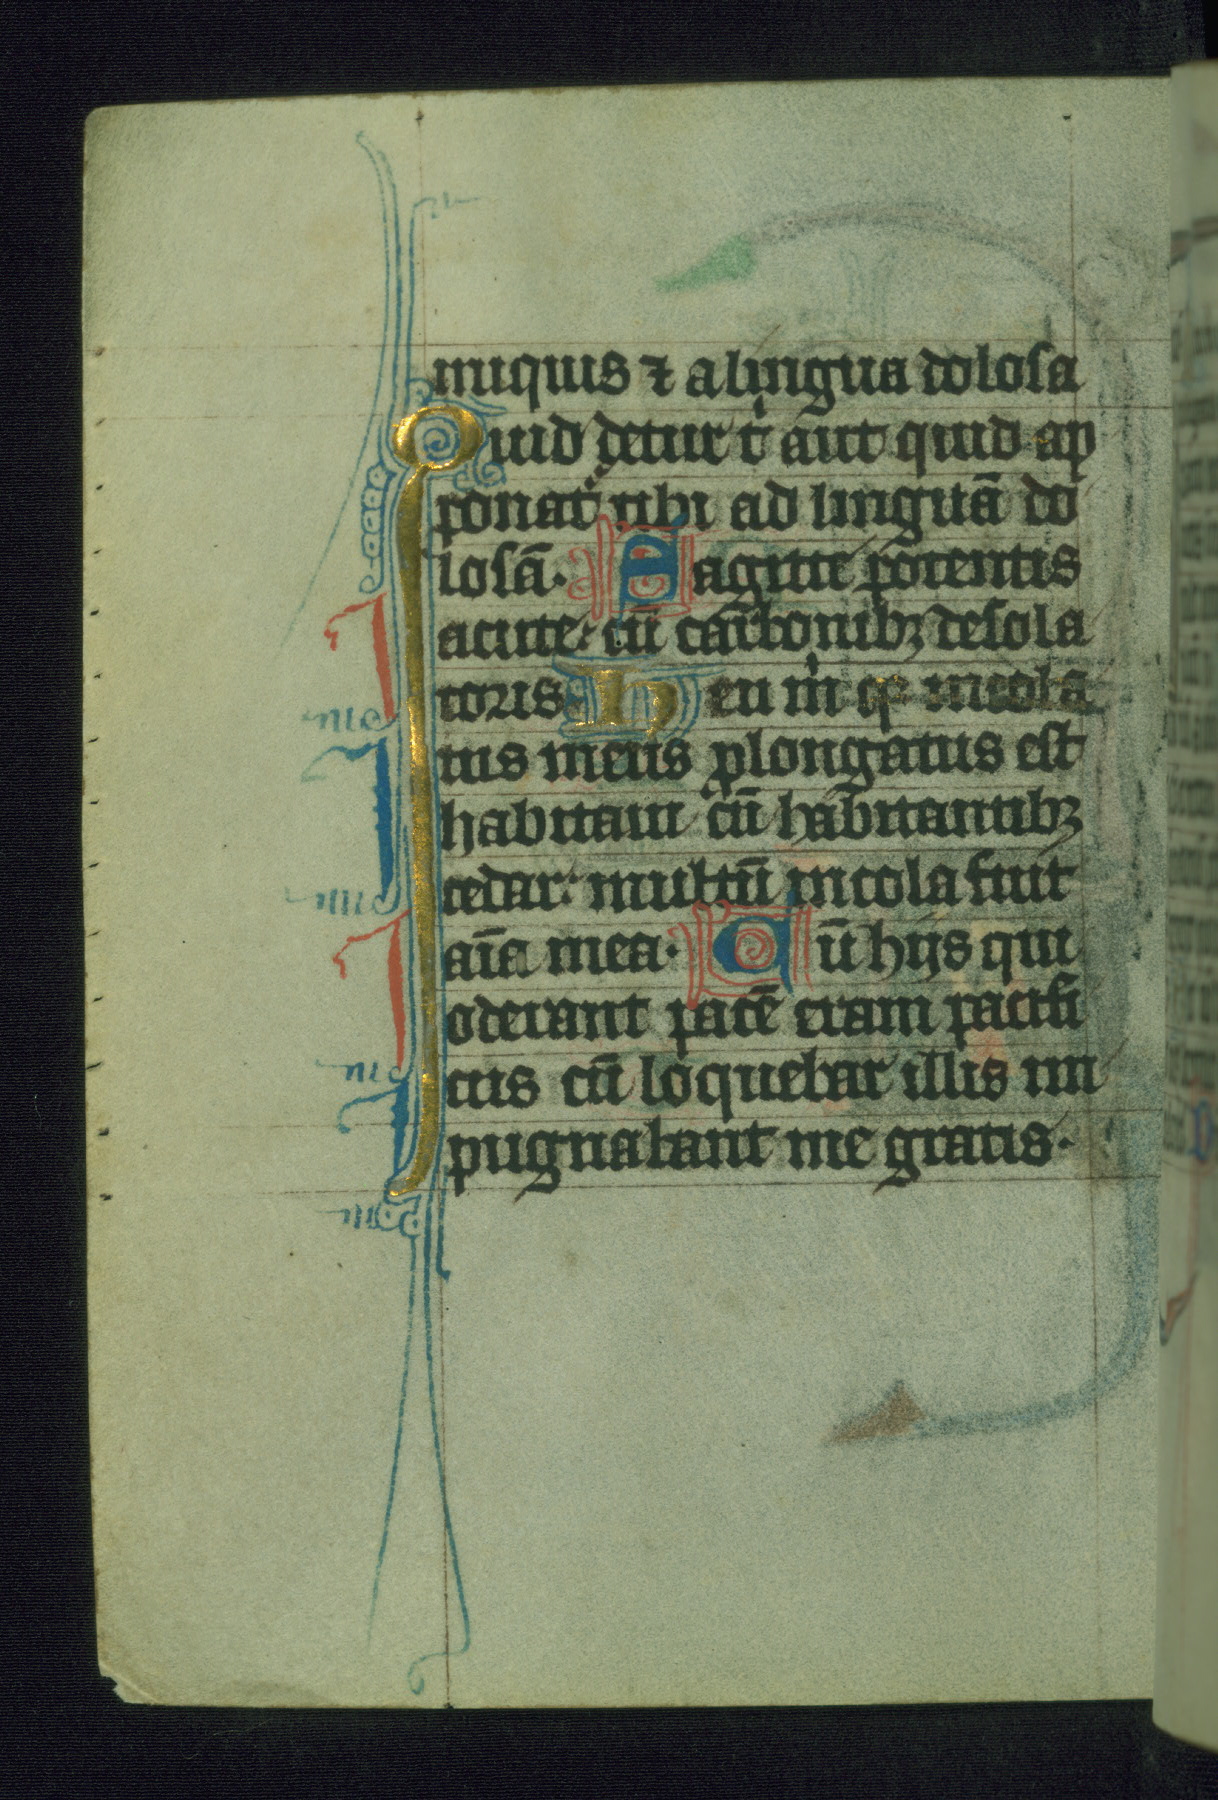 iniquis ⁊ a lingua dolosa
Quid detur t̾ aut quid ap
ponat᷑ tibi ad linguā do
losā. Sagitte potentis
acute: cū carbonibꝫ desola
toriis Heu m̾ qꝛ incola
tus meus ꝓlongatus est
habitaui cū habitantibꝫ
cedar: multū incola fuit
aīa mea. Cū hijs qui
oderant pacē eram pacifi
cus cū loquebar illis im
pugnabant me gratis.